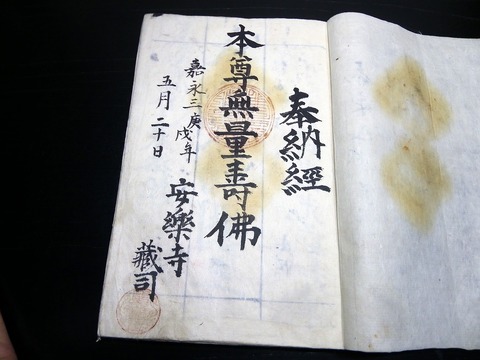 奉納經
本尊無量壽佛
嘉永三庚戌年
五月二十日
安樂寺
藏司